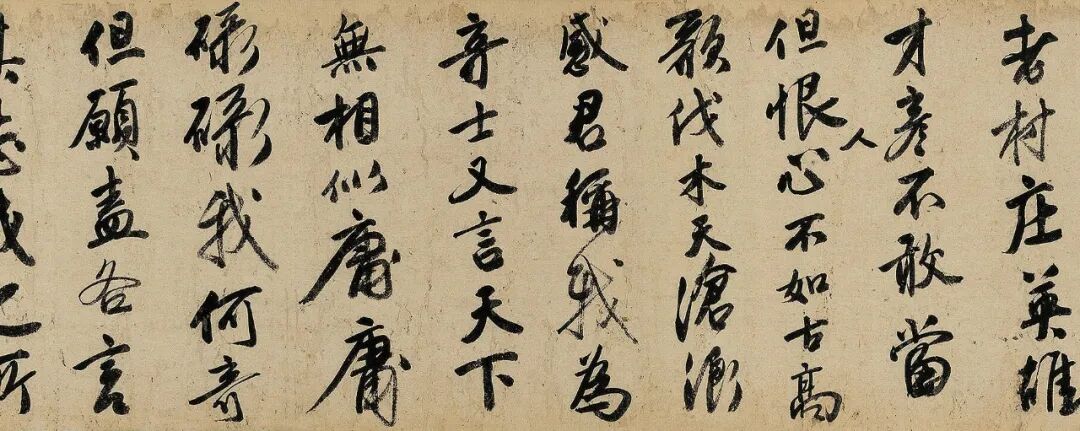 老村庄英雄
才彥不敢當
但恨人心不如古高
歌伐木天滄浪
感君稱我為
奇士又言天下
無相似庸庸
碌碌我何奇
但願盡各言